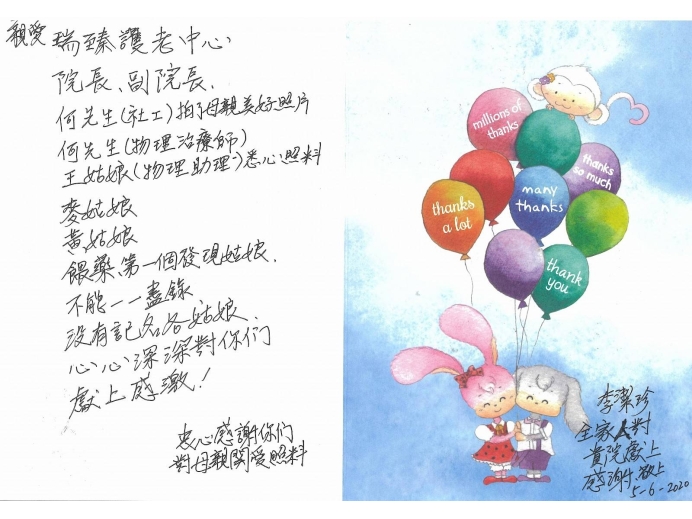 親愛瑞臻護老中心
院長、副院長、
何先生(社工)拍了母親美好照片
何先生(物理治療師)
王姑娘(物理助理)悉心照料
麥姑娘
黃姑娘
餵藥、第一個發現姑娘、
不能一一盡錄、
沒有記名各姑娘、
心心深深對你們
獻上感激!
忠心感謝你们
對母親関爱照料
millions of
thanks
thanks
so much
many
thanks
thanks
a lot
thank
you
李潔珍
全家人對
貴院獻上
感謝.敬上
5-6-2020